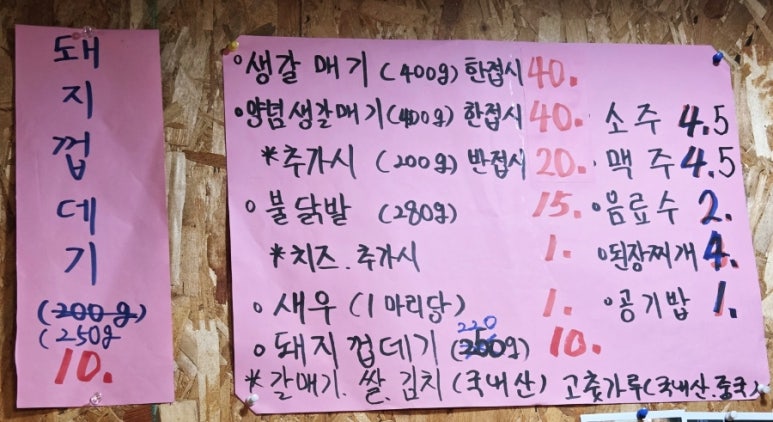 돼지껍데기
(200g)
(250g
10.
○생갈매기 (400g) 한접시 40.
○양념생갈매기 (400g) 한접시 40.
*추가시 (200g) 반접시 20.
○불닭발 (280g) 15.
*치즈.추가시 1.
○새우 (1마리당) 1.
○돼지껍데기 (g) 10.
*갈매기.쌀.김치(국내산) 고춧가루(국내산.중국)
소주 4.5
맥주 4.5
음료수 2.
된장찌개 4.
공기밥 1.